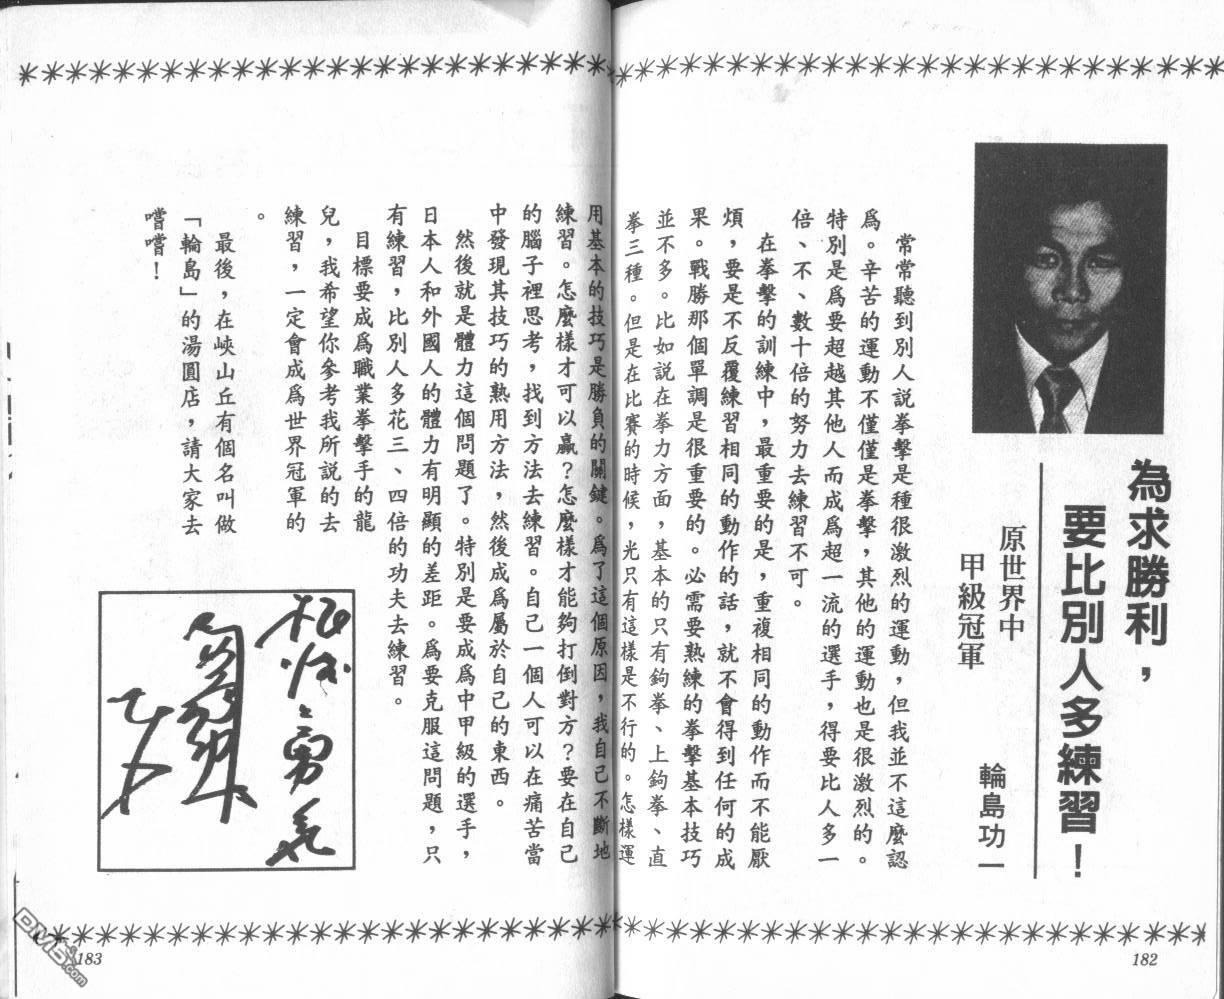 為求勝利，
要比別人多練習！
原世界中
甲級冠軍
輪島功一
常常聽到別人說拳擊是種很激烈的運動，但我並不這麼認
爲。辛苦的運動不僅僅是拳擊，其他的運動也是很激烈的。
特別是爲要超越其他人而成爲超一流的選手，得要比人多一
倍、不、數十倍的努力去練習不可。
在拳擊的訓練中，最重要的是，重複相同的動作而不能厭
煩，要是不反覆練習相同的動作的話，就不會得到任何的成
果。戰勝那個單調是很重要的。必需要熟練的拳擊基本技巧
並不多。比如說在拳力方面，基本的只有鉤拳、上鉤拳、直
拳三種。但是在比賽的時候，光只有這樣是不行的。怎樣運
用基本的技巧是勝負的關鍵。爲了這個原因，我自己不斷地
練習。怎麼樣才可以贏？怎麼樣才能夠打倒對方？要在自己
的腦子裡思考，找到方法去練習。自己一個人可以在痛苦當
中發現其技巧的熟用方法，然後成爲屬於自己的東西。
然後就是體力這個問題了。特別是要成爲中甲級的選手，
日本人和外國人的體力有明顯的差距。爲要克服這問題，只
有練習，比別人多花三、四倍的功夫去練習。
目標要成爲職業拳擊手的龍
兒，我希望你參考我所說的去
練習，一定會成爲世界冠軍的
。
最後，在峽山丘有個名叫做
「輪島」的湯圓店，請大家去
嚐嚐！
182
183